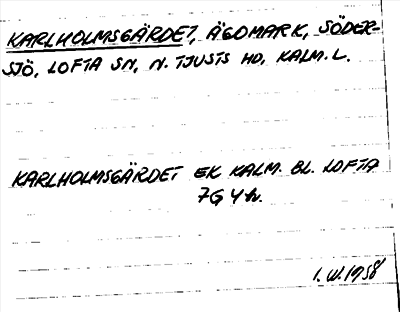 KARLHOLMSGÄRDET, ÄGOMARK, SÖDER-
SJÖ, LOFTA SN, N. TJUSTS HD, KALM. L.
KARLHOLMSGÄRDET EK KALM. BL. LOFTA
7G 4h.
1.VI.1958